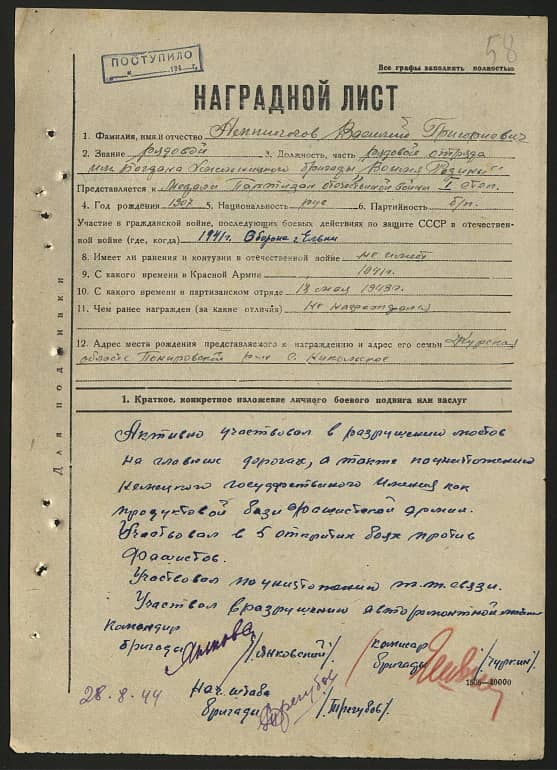 58
ПОСТУПИЛО
194 г.
Все графы заполнять полностью
НАГРАДНОЙ ЛИСТ
1. Фамилия, имя и отчество Василий Григориевич
2. Звание рядовой 3. Должность, часть рядовой отряда
им Богдана Хмельницкого бригады "За Родину"
Представляется к Медали Партизан отечественной войны степ.
4. Год рождения 1907 5. Национальность рус 6. Партийность б/п.
Участие в гражданской войне, последующих боевых действиях по защите СССР в отечествен-
ной войне (где, когда) 1941г. Оборона г. Ельни
8. Имеет ли ранения и контузии в отечественной войне не имеет
9. С какого времени в Красной Армии 1941г.
10. С какого времени в партизанском отряде 1943г.
11. Чем ранее награжден (за какие отличия) Не награждался
12. Адрес места рождения представляемого к награждению и адрес его семьи Курская
область с. Никольское
Для подшивки
1. Краткое, конкретное изложение личного боевого подвига или заслуг
Активно участвовал в разрушении мостов
на главных дорогах, а также по уничтожению
немецкого государственого имения как
продуктовой бази фашистской армии.
Участвовал в 5 открытих боях против
фашистов.
Участвовал по уничтожению т.т. связи.
Участвал в разрушении авторемонтной
Командир
бригади /Янковский/.
Комисар
бригади /Чуркин/
28.8.44
Нач. штаба
бригади /Трегубов/.